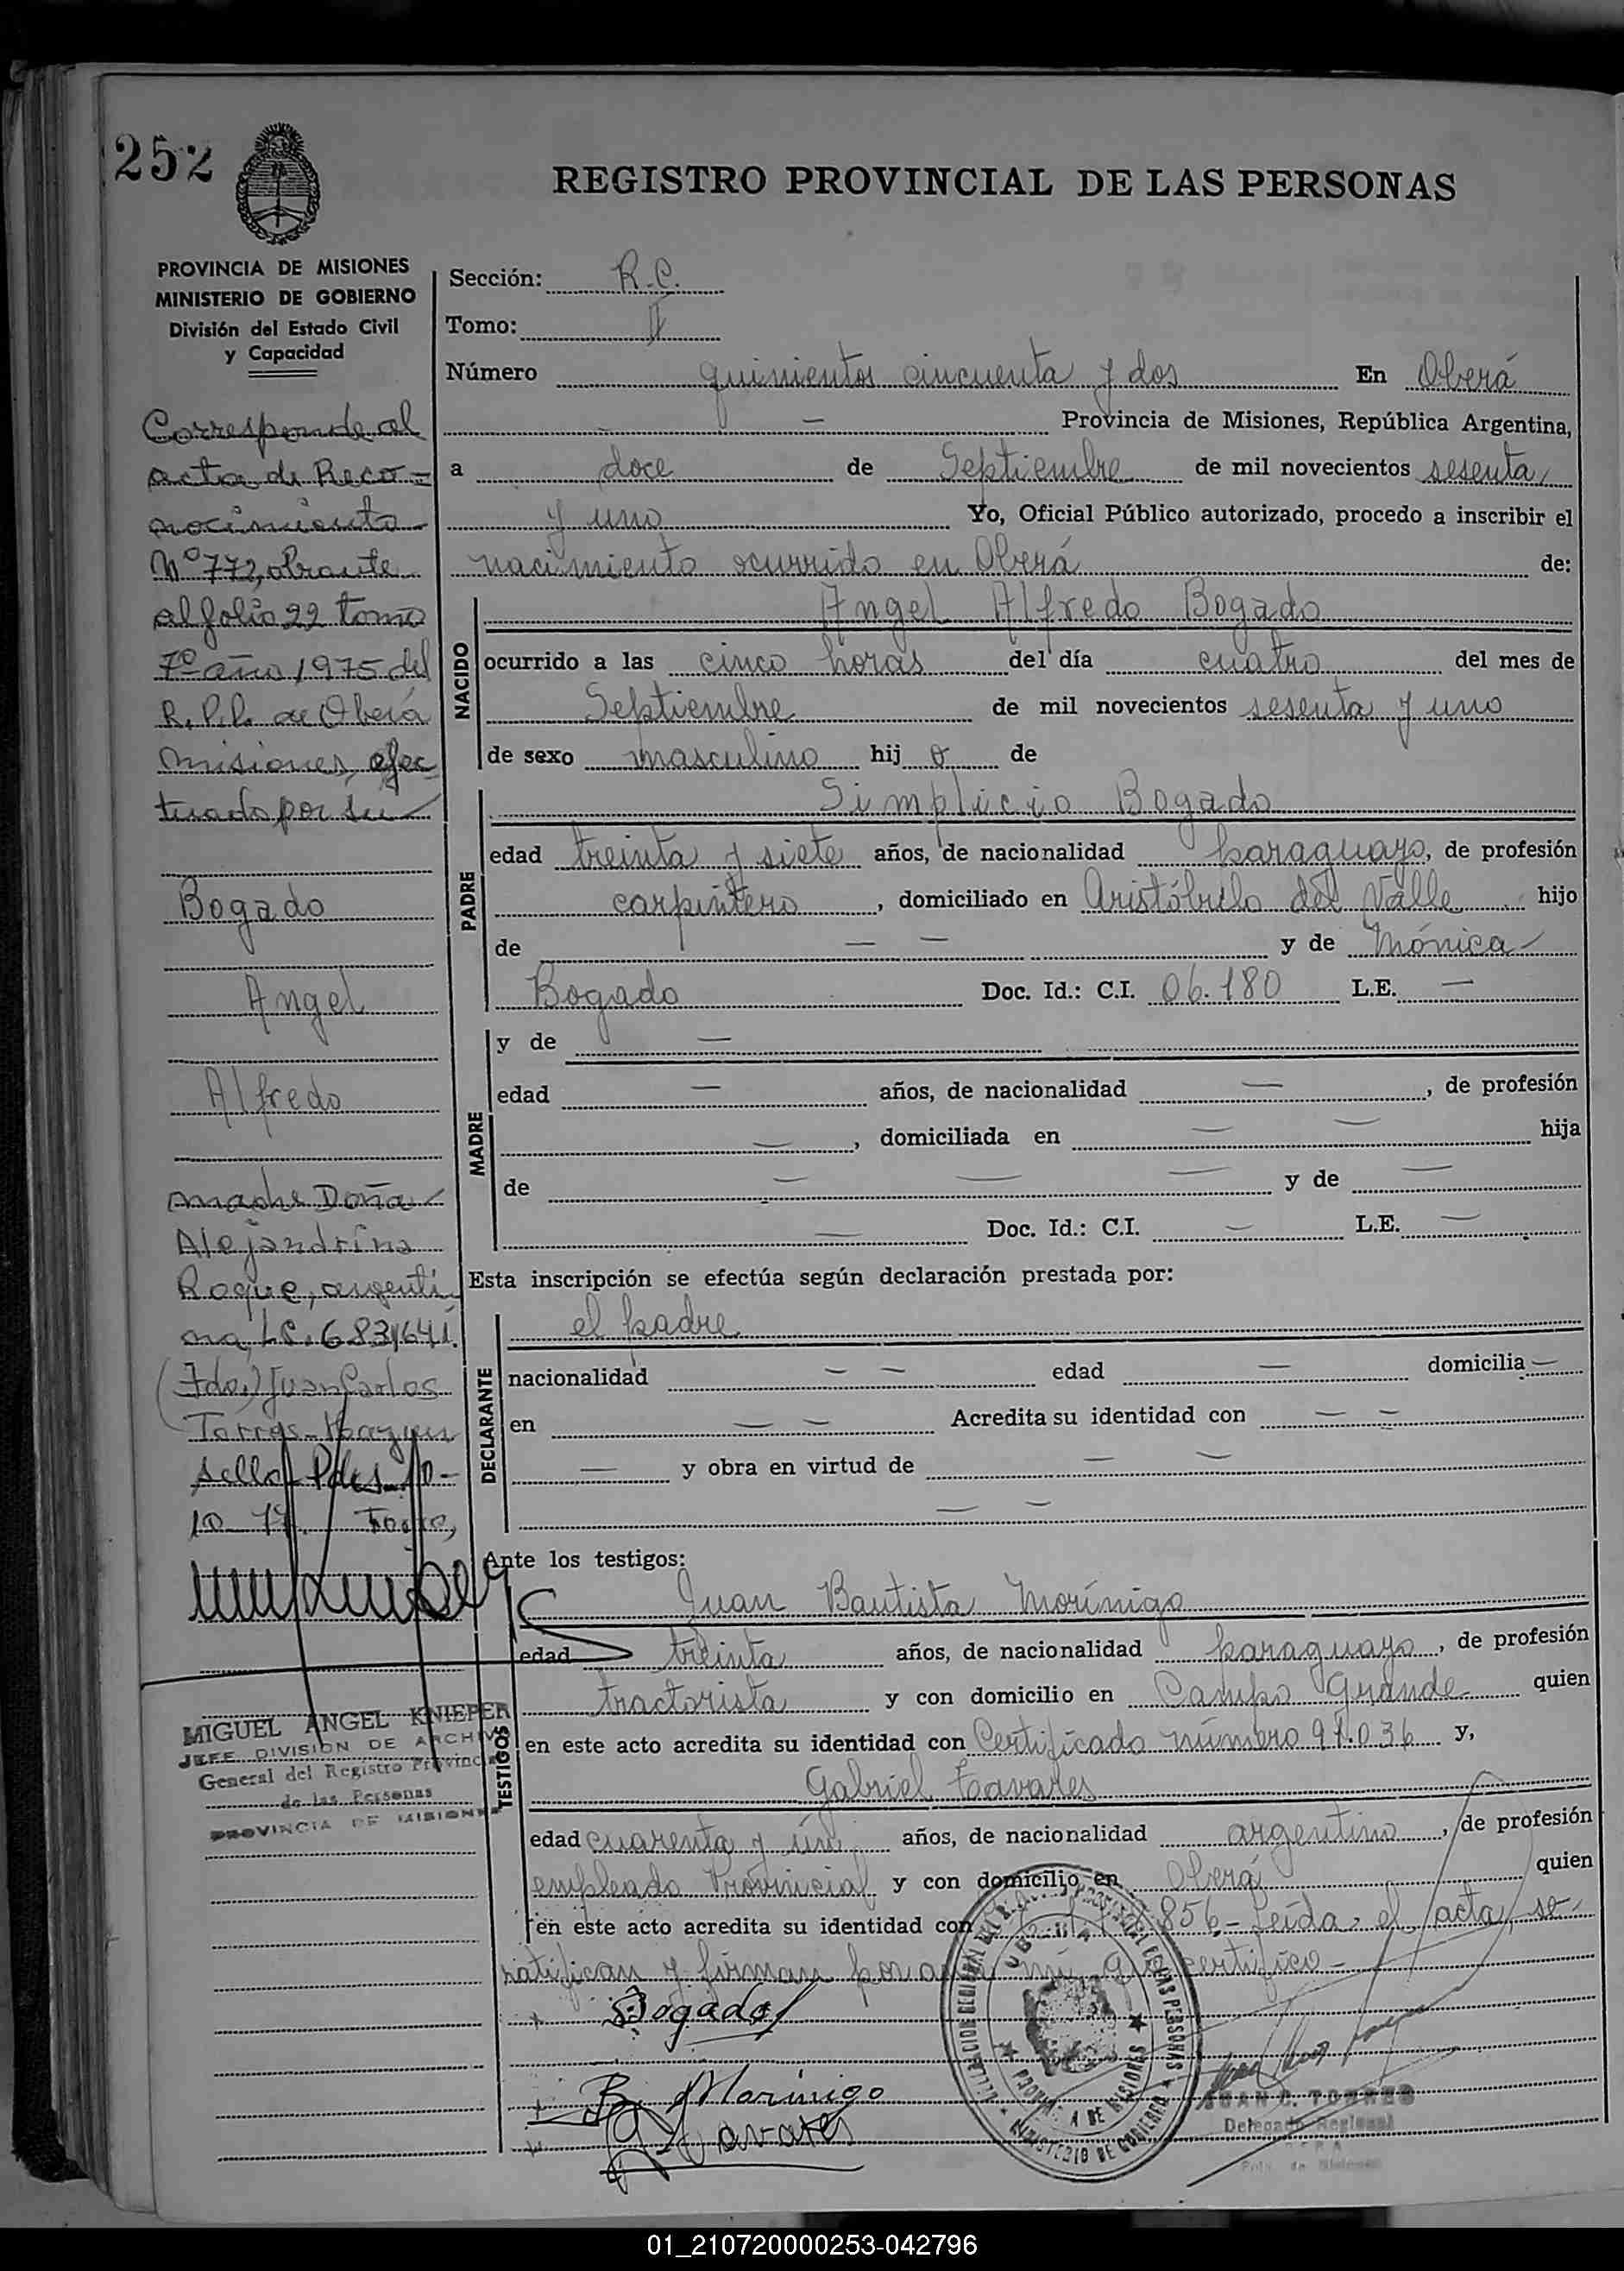 252
REGISTRO PROVINCIAL DE LAS PERSONAS
PROVINCIA DE MISIONES
MINISTERIO DE GOBIERNO
División del Estado Civil
y Capacidad
Corresponde al
acta de Reco=
nocimiento
Nº 772, obrante
al folio 22 tomo
7º año 1975 del
R.P.P. de Oberá
Misiones, efec
tuado por su
Bogado
Angel
Alfredo
madre Doña
Alejandrina
Roque, argenti
na, L.C. 6831641.
(Fdo.) Juan Carlos
Torres
sello Pdas. 10-
10-77.
MIGUEL ANGEL KNIEPER
JEFE DIVISION DE ARCHIVO
General del Registro Provincial
de las Personas
PROVINCIA DE MISIONES
Sección: R.C.
Tomo: II
Número quinientos cincuenta y dos En Oberá
— Provincia de Misiones, República Argentina,
a doce de Septiembre de mil novecientos sesenta
y uno Yo, Oficial Público autorizado, procedo a inscribir el
nacimiento ocurrido en Oberá de:
NACIDO
Angel Alfredo Bogado
ocurrido a las cinco horas del día cuatro del mes de
Septiembre de mil novecientos sesenta y uno
de sexo masculino hij o de
PADRE
Simplicio Bogado
edad treinta y siete años, de nacionalidad paraguayo, de profesión
carpintero, domiciliado en Aristóbulo del Valle hijo
de — — y de Mónica
Bogado Doc. Id.: C.I. 06.180 L.E. —
MADRE
y de —
edad — años, de nacionalidad —, de profesión
—, domiciliada en — — hija
de — — — y de —
— Doc. Id.: C.I. — L.E. —
Esta inscripción se efectúa según declaración prestada por:
DECLARANTE
el padre
nacionalidad — — edad — domicilia —
en — — Acredita su identidad con — —
— y obra en virtud de — —
— —
Ante los testigos:
TESTIGOS
Juan Bautista Morínigo
edad treinta años, de nacionalidad paraguayo, de profesión
tractorista y con domicilio en Campo Grande quien
en este acto acredita su identidad con Certificado número 91.036 y,
Gabriel Tavares
edad cuarenta y un años, de nacionalidad argentino, de profesión
empleado Provincial y con domicilio en Oberá quien
en este acto acredita su identidad con 856.- Leída el acta se
ratifican y firman por ante mí que certifico-
Bogado
B. Morinigo
G Tavares
PROVINCIA DE MISIONES
MINISTERIO DE GOBIERNO
JUAN C. TORRES
Delegado Regional
OBERA
Pcia. de Misiones
01_210720000253-042796